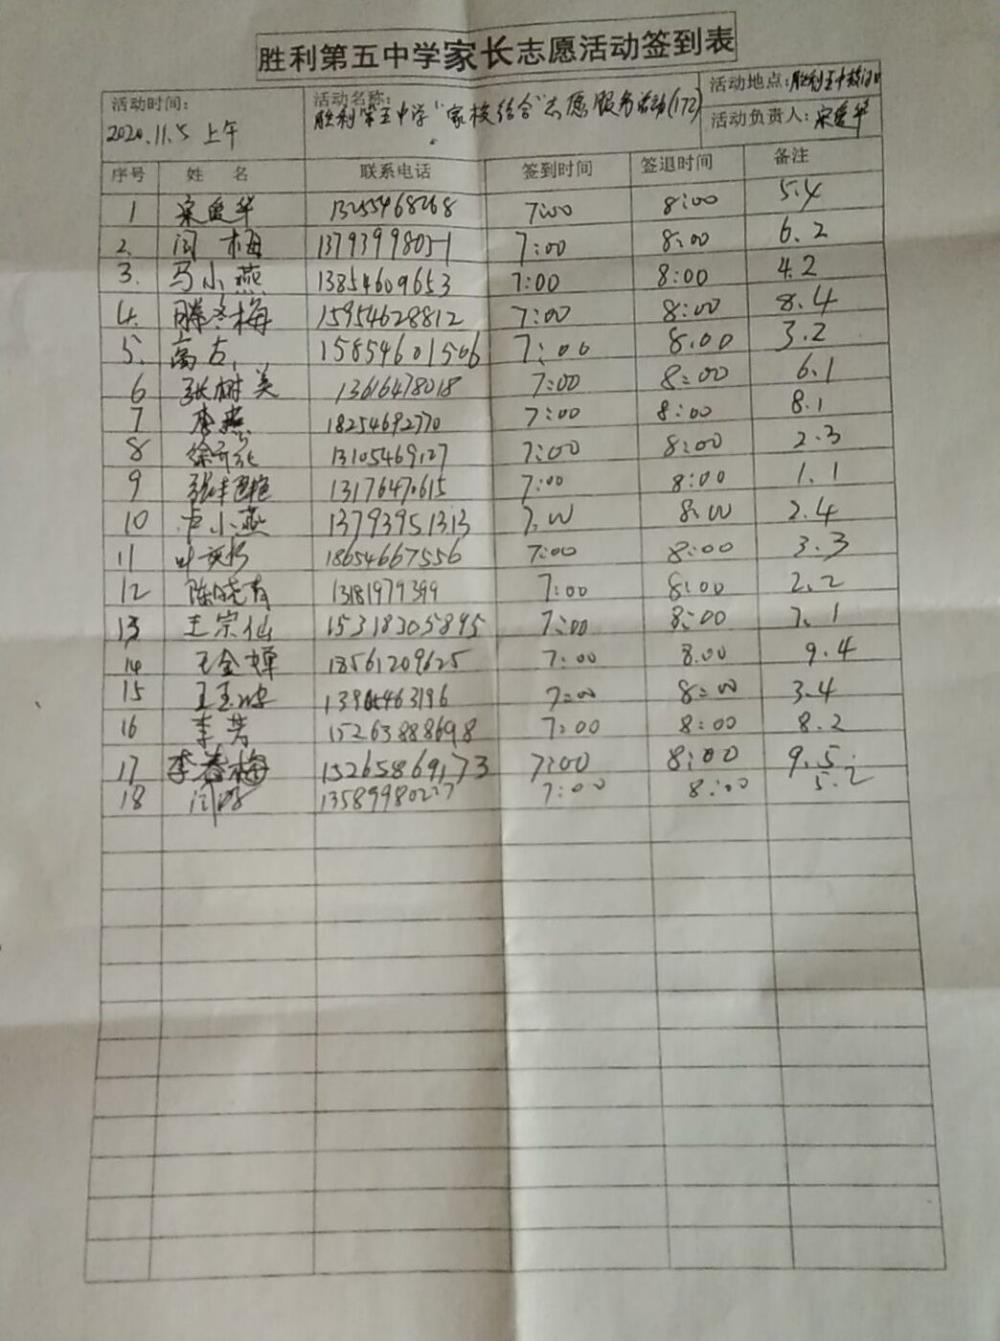 胜利第五中学家长志愿活动签到表
活动时间: 2020.11.5 上午
活动名称: 胜利第五中学"家校结合"志愿服务活动(172)
活动地点:胜利五中校门口
活动负责人:宋爱华
序号 姓 名 联系电话 签到时间 签退时间 备注
1 宋爱华 13255468268 7:00 8:00 5.4
2. 闫梅 13793998051 7:00 8:00 6.2
3. 马小燕 13854609653 7:00 8:00 4.2
4. 滕冬梅 15954628812 7:00 8:00 8.4
5. 高 15854601506 7:00 8.00 3.2
6 张树美 13616478018 7:00 8:00 6.1
7 李燕 18254692770 7:00 8:00 8.1
8 徐 13105469127 7:00 8:00 2.3
9 张 13176470615 7:00 8:00 1.1
10 卢小燕 13793951313 7.00 8:00 2.4
11 叶 18654667556 7:00 8:00 3.3
12 陈晓青 13181979399 7:00 8:00 2.2
13 王宗仙 15318305895 7:00 8:00 7.1
14 王金婵 18561209625 7:00 8.00 9.4
15 王玉波 7:00 8:00 3.4
16 李芳 15263888698 7:00 8:00 8.2
17 李春梅 15265869173 7:00 8:00 9.5
18 闫 13589980227 7:00 8:00 5.2